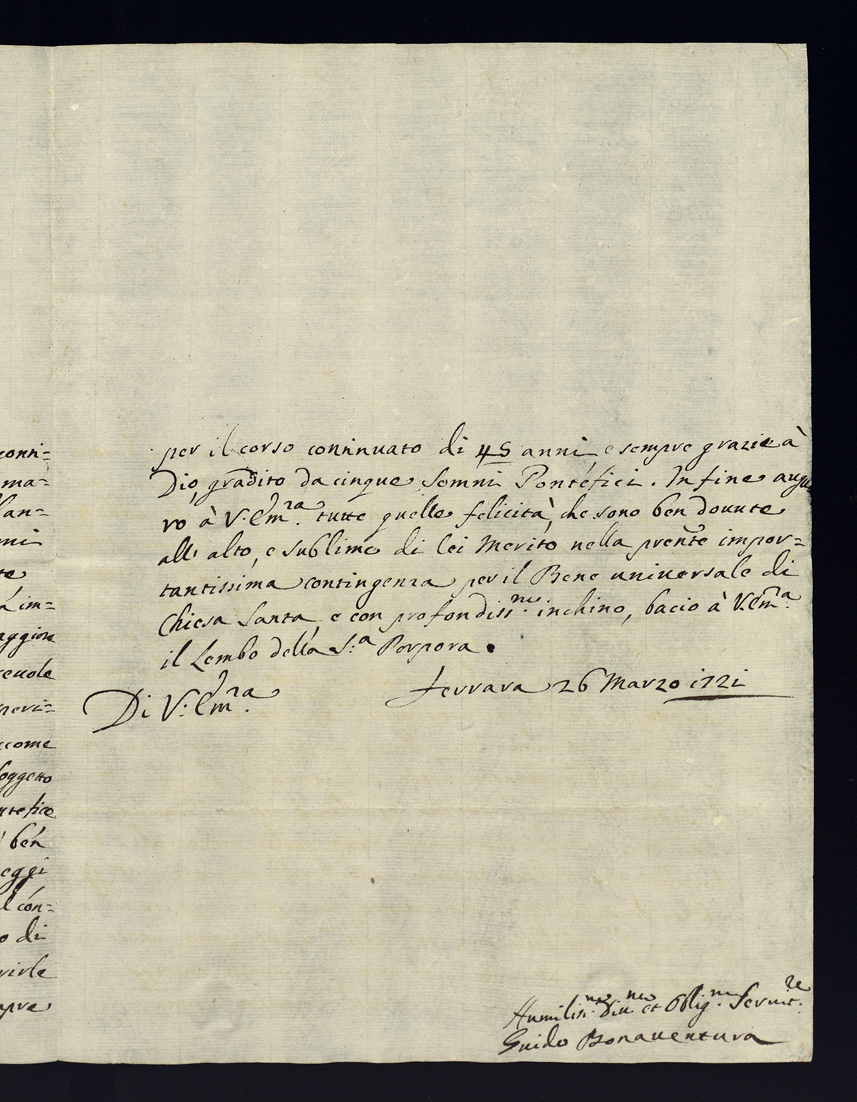 conti=
ma=
San=
mi
te
Lim=
aggiore
reuole
peri=
come
soggetto
ntefice
ben
eggi
l con=
o di
rirle
mpre
per il corso continuato di 45 anni e sempre grazie à
Dio, gradito da cinque Sommi Pontefici. In fine augu
ro à V. Em.ra tutte quelle felicità, che sono ben douute
all' alto, e sublime di lei Merito nella pren̄te impor=
tantissima contingenza per il Bene universale di
Chiesa Santa, e con profondiss.mo inchino, bacio à V. Em.a
il Lembo della S.a Porpora.
Di V. Em.ra
Ferrara 26 Marzo 1721
Humiliss.mo Diu.mo et Oblig.mo Seruit.re
Guido Bonauentura